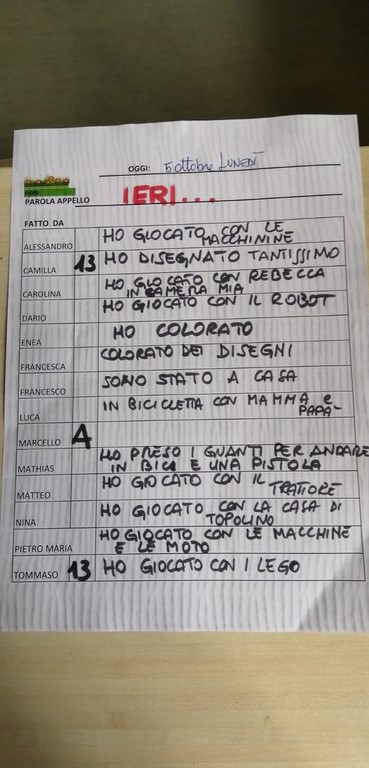 OGGI: 5 ottobre LUNEDÌ
PAROLA APPELLO IERI...
FATTO DA
ALESSANDRO HO GIOCATO CON LE
MACCHININE
CAMILLA 13 HO DISEGNATO TANTISSIMO
CAROLINA HO GIOCATO CON REBECCA
IN CAMERA MIA
DARIO HO GIOCATO CON IL ROBOT
ENEA HO COLORATO
FRANCESCA COLORATO DEI DISEGNI
FRANCESCO SONO STATO A CASA
LUCA IN BICICLETTA CON MAMMA e
PAPA-
MARCELLO A
MATHIAS HO PRESO I GUANTI PER ANDARE
IN BICI E UNA PISTOLA
MATTEO HO GIOCATO CON IL
TRATTORE
NINA HO GIOCATO CON LA CASA DI
TOPOLINO
PIETRO MARIA HO GIOCATO CON LE MACCHINE
E LE MOTO
TOMMASO 13 HO GIOCATO CON I LEGO